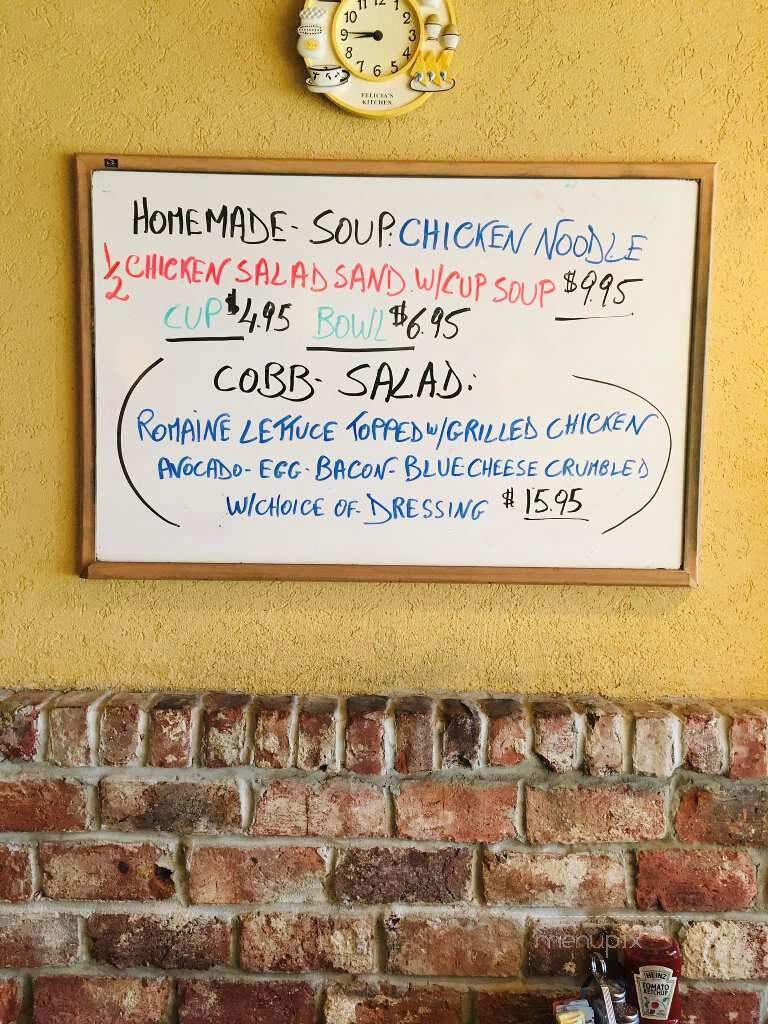 12 1 2 3 4 5 6 7 8 9 10 11
FELICIA'S
KITCHEN
HOMEMADE - SOUP: CHICKEN NOODLE
1/2 CHICKEN SALAD SAND. W/CUP SOUP $9.95
CUP $4.95 BOWL $6.95
COBB - SALAD:
ROMAINE LETTUCE TOPPED W/GRILLED CHICKEN
AVOCADO - EGG - BACON - BLUECHEESE CRUMBLED
W/CHOICE OF - DRESSING $15.95
menupix
HEINZ
TOMATO
KETCHUP